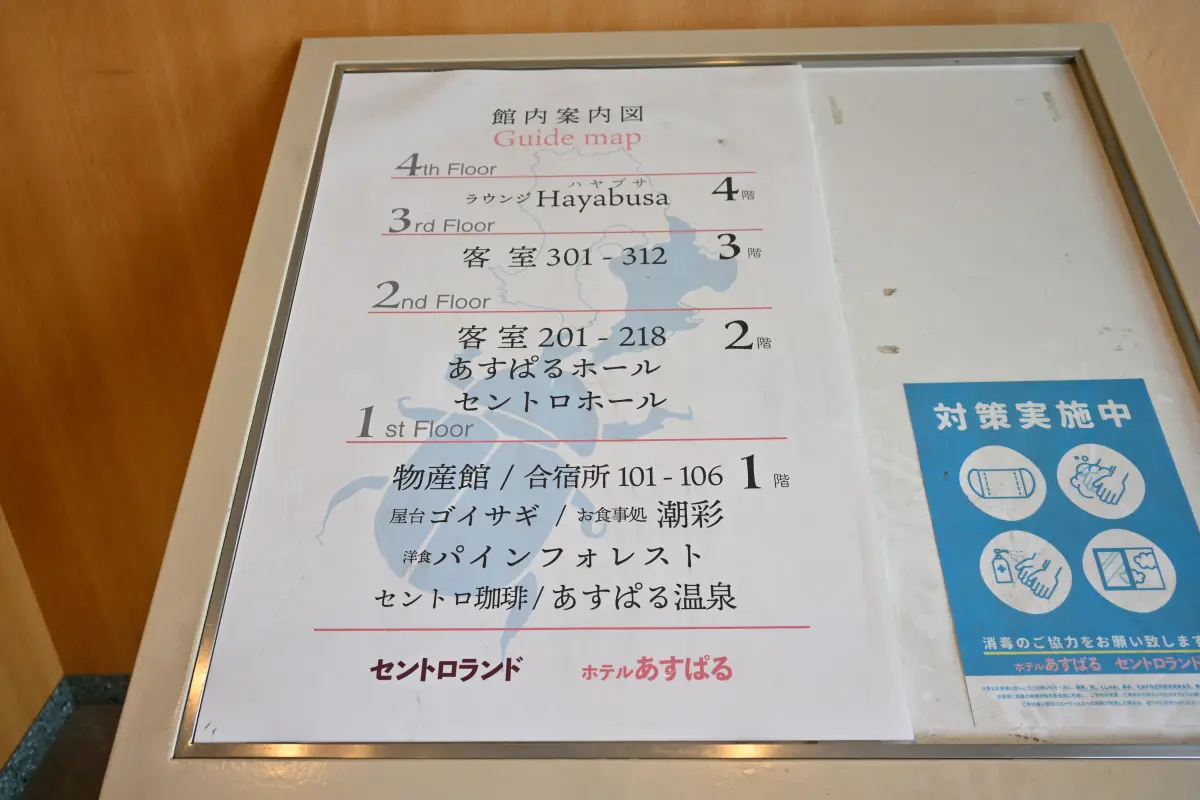 館内案内図
Guide map
4th Floor
ハヤブサ
ラウンジ Hayabusa 4階
3rd Floor
客室 301 - 312 3階
2nd Floor
客室 201 - 218 2階
あすぱるホール
セントロホール
1st Floor
物産館 / 合宿所 101 - 106 1階
屋台 ゴイサギ / お食事処 潮彩
洋食 パインフォレスト
セントロ珈琲 / あすぱる温泉
セントロランド ホテルあすぱる
対策実施中
消毒のご協力をお願い致します
ホテルあすぱる セントロランド